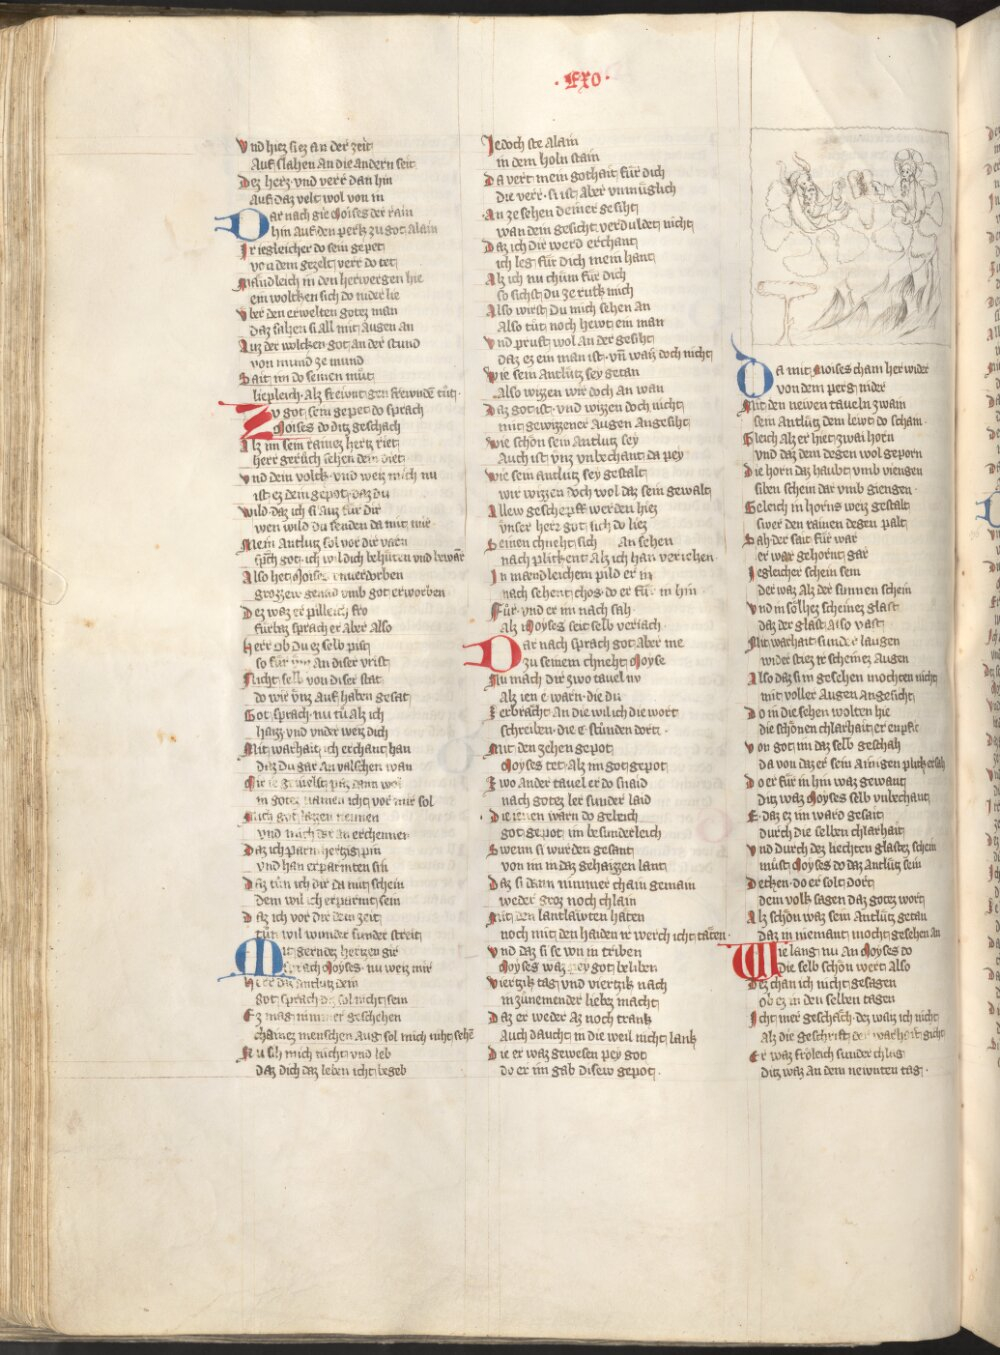 · Exo ·
Vnd hiez siez an der zeit
Auf slahen An die andern seit
Dez herz · vnd verr dan hin
Auf daz velt wol von in
Dar nach gie Moises der rain
hin Auf den perk zu got alain
Ir iegleicher do sein gepet
von dem gezelt verr do tet
Mandleich in den herwergen hie
ein wolcken sich do nider lie
Vber den erwelten gotez man
daz sahen si all mit augen an
Auz der wolcken got an der stund
von mund ze mund
Sait im do seinen mut
liepleich · Alz freiunt gen freunde tut ·
Zv got sein gepet do sprach
Moises do ditz geschach
Alz im sein rainez hertz riet
herr geruch sehen dein diet
Vnd dein volck · vnd weiz mich nu
ist ez dein gepot · daz du
Wild · daz ich si auz für dir
wen wild du senden da mit mir ·
Mein Antlutz sol vor dir varn
sprach got · ich wil dich behuten vnd bewarn
Also het Moises erworben
grozzew genad vmb got erworben
Dez waz er pilleich fro
fürbaz sprach er Aber Also
Herr ob du ez selb pist
so für An diser vrist
Nicht selb von diser stat
do wir vnz Auf haben gesat
Got sprach · nu tu Alz ich
haiz vnd vnder weiz dich
Mit warhait ich erchant han
Ditz du gar An valschen wan
in gotez namen icht vor mir sol
Mich got lazzen nennen
vnd mich dar an erchennen
Daz ich parmhertzig pin
vnd han erparmten sin
Daz tun ich dir da mit schein
dem wil ich erparmt sein
Daz ich vor dir dem zeit
tun wil wunder sunder streit
Mit gerndez hertzen gir
sprach Moyses · nu weiz mir
Herr daz antlutz dein
got sprach dez sol nicht sein
Ez mag nimmer geschehen
chainez menschen Aug sol mich nicht sehen
Nu sih mich nicht vnd leb
daz dich daz leben icht begeb
Iedoch ste alain
in dem holn stain
Da vert mein gothait für dich
die verr · si ist Aber vnmüglich
An ze sehen deiner gesiht
wan dein gesicht verduldet nicht
Daz ich dir werd erchant
ich leg für dich mein hant
Alz ich nu chum für dich
so sichst du ze rukk mich
Also wirst du mich sehen an
Also tut noch hewt ein man
Vnd prüft wol An der gesiht
daz ez ein man ist · vnd waiz doch nicht
Wie sein Antlutz sey getan
Also wizzen wir doch an wan
Daz got ist · vnd wizzen doch nicht
mit gewizener Augen Angesiht
Wie schon sein Antlutz sey
Auch ist vnz vnbechant da pey
Wie sein antlutz sey gestalt
wir wizzen doch wol daz sein gewalt
Allew geschepff werden hiez
vnser herr got sich do liez
Seinen chneht sich An sehen
nach plickent Alz ich han veriehen ·
In mandleichem pild er in
nach sehent chos · do er für in hin
Für · vnd er im nach sah
Alz Moyses seit selb veriach ·
Dar nach sprach got aber me
zu seinem chneht Moyse
Nu mach dir zwo tauel nv
Alz ien e warn · die du
Zerbrächt An die wil ich die wort
schreiben · die e stunden dort ·
Mit den zehen gepot
Moyses tet · Alz im got gepot
Zwo Ander tauel er do snaid
nach gotez ler sunder laid
Die ienen warn do geleich
got gepot im besunderleich
Swenn si wurden gesant
von im in daz gehaizzen lant
Daz si dann nimmer chain gemain
weder groz noch chlain
Mit den lantlawten haten
noch mit den haiden ir werch icht täten ·
Vnd daz si se von in triben
Moyses waz pey got beliben
Viertzik tag vnd viertzik nach
in zünemender liebez macht
Daz er weder az noch trank
Auch daucht in die weil nicht lank
Die er waz gewesen pey got
do er im gab disew gepot ·
Da mit Moises cham her wider
von dem perg nider
Mit den newen taueln zwain
sein Antlutz dem lewt do schain ·
Gleich Alz er hiet zwai horn
vnd daz dem degen wol geporn
Die horn daz haubt vmb viengen
siben schein dar vmb giengen ·
Geleich in horns weiz gestalt
swer den rainen degen palt
Sah · der sait für war
er war gehornt gar
Iegleicher schein sein
der waz Alz der sunnen schein
Vnd in sölhez scheinez glast
daz der glast Also vast
Mit warhait sunder laugen
wider stiez ir scheinez Augen
Also daz si in gesehen mochten nicht
mit voller Augen Angesicht
Do in die sehen wolten hie
die schönen chlarhait er enpfie
Von got im daz selb geschah
da von daz er sein Ainigen plick ersah
Do er für in hin waz gewant
Ditz waz Moyses selb vnbechant
E · daz ez im ward gesait
durch die selben chlarhait
Vnd durch dez liechten glastez schein
must Moyses do daz Antlutz sein
Decken · do er solt dort
dem volk sagen daz gotez wort
Alz schon waz sein Antlutz getan
daz in niemant mocht gesehen an
Wie lang nu An Moyses do
die selb schon wert Also
Dez chan ich nicht gesagen
ob ez in den selben tagen
Icht mer geschach · dez waiz ich nicht
Alz die geschrift der warhait gicht
Er waz frölich sunder chlag
ditz waz an dem newnten tag ·